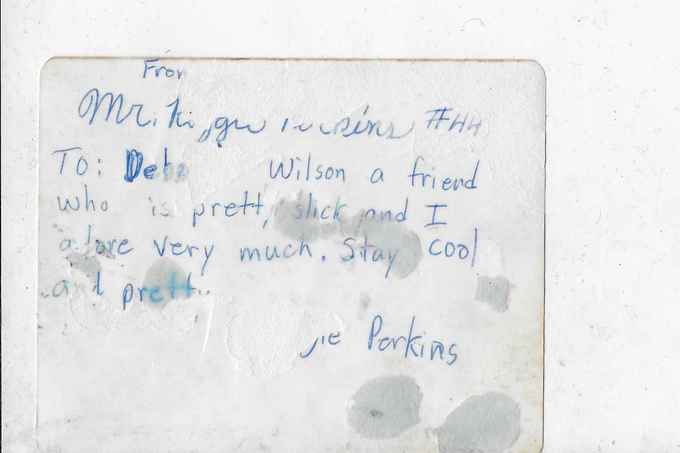 From
Mr. #44
To: Wilson a friend
who is pretty slick and I
adore very much. Stay cool
and pretty
Perkins